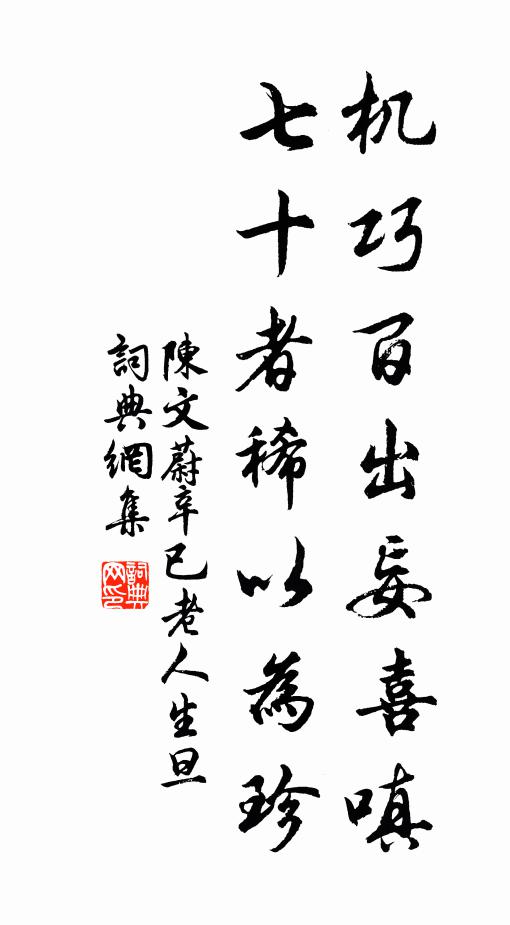 机巧百出妄喜嗔
七十者稀以為珍
陳文蔚辛巳老人生旦
詞典網集
詞典网印